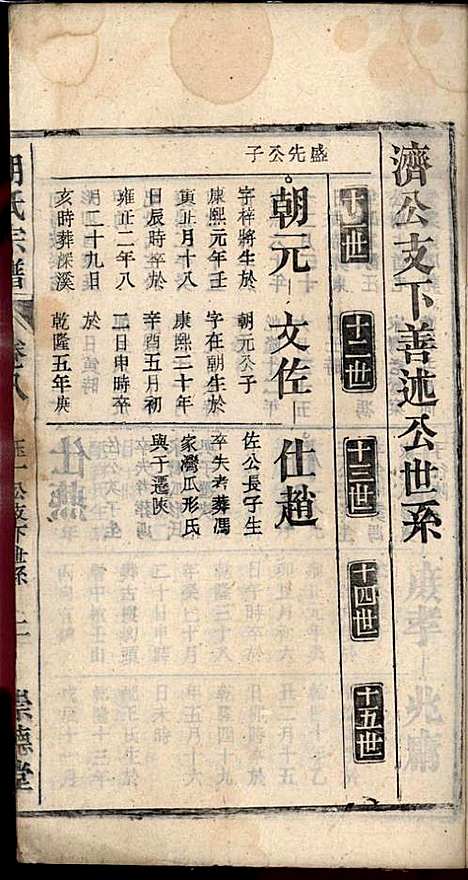 濟公支下善述公世系
十一世
十二世
十三世
十四世
十五世
盛先公子
朝元
字梓將生於
康熙元年壬
寅正月十八
日辰時卒於
雍正二年八
月二十九日
亥時葬深溪
文佐
朝元公子
字在朝生於
康熙二十年
辛酉五月初
二日申時卒
於
乾隆五年庚
仕趙
佐公長子生
卒失考葬馮
家灣瓜形氏
與于遷陜
胡氏宗譜
卷八
公支下世系
崇德堂